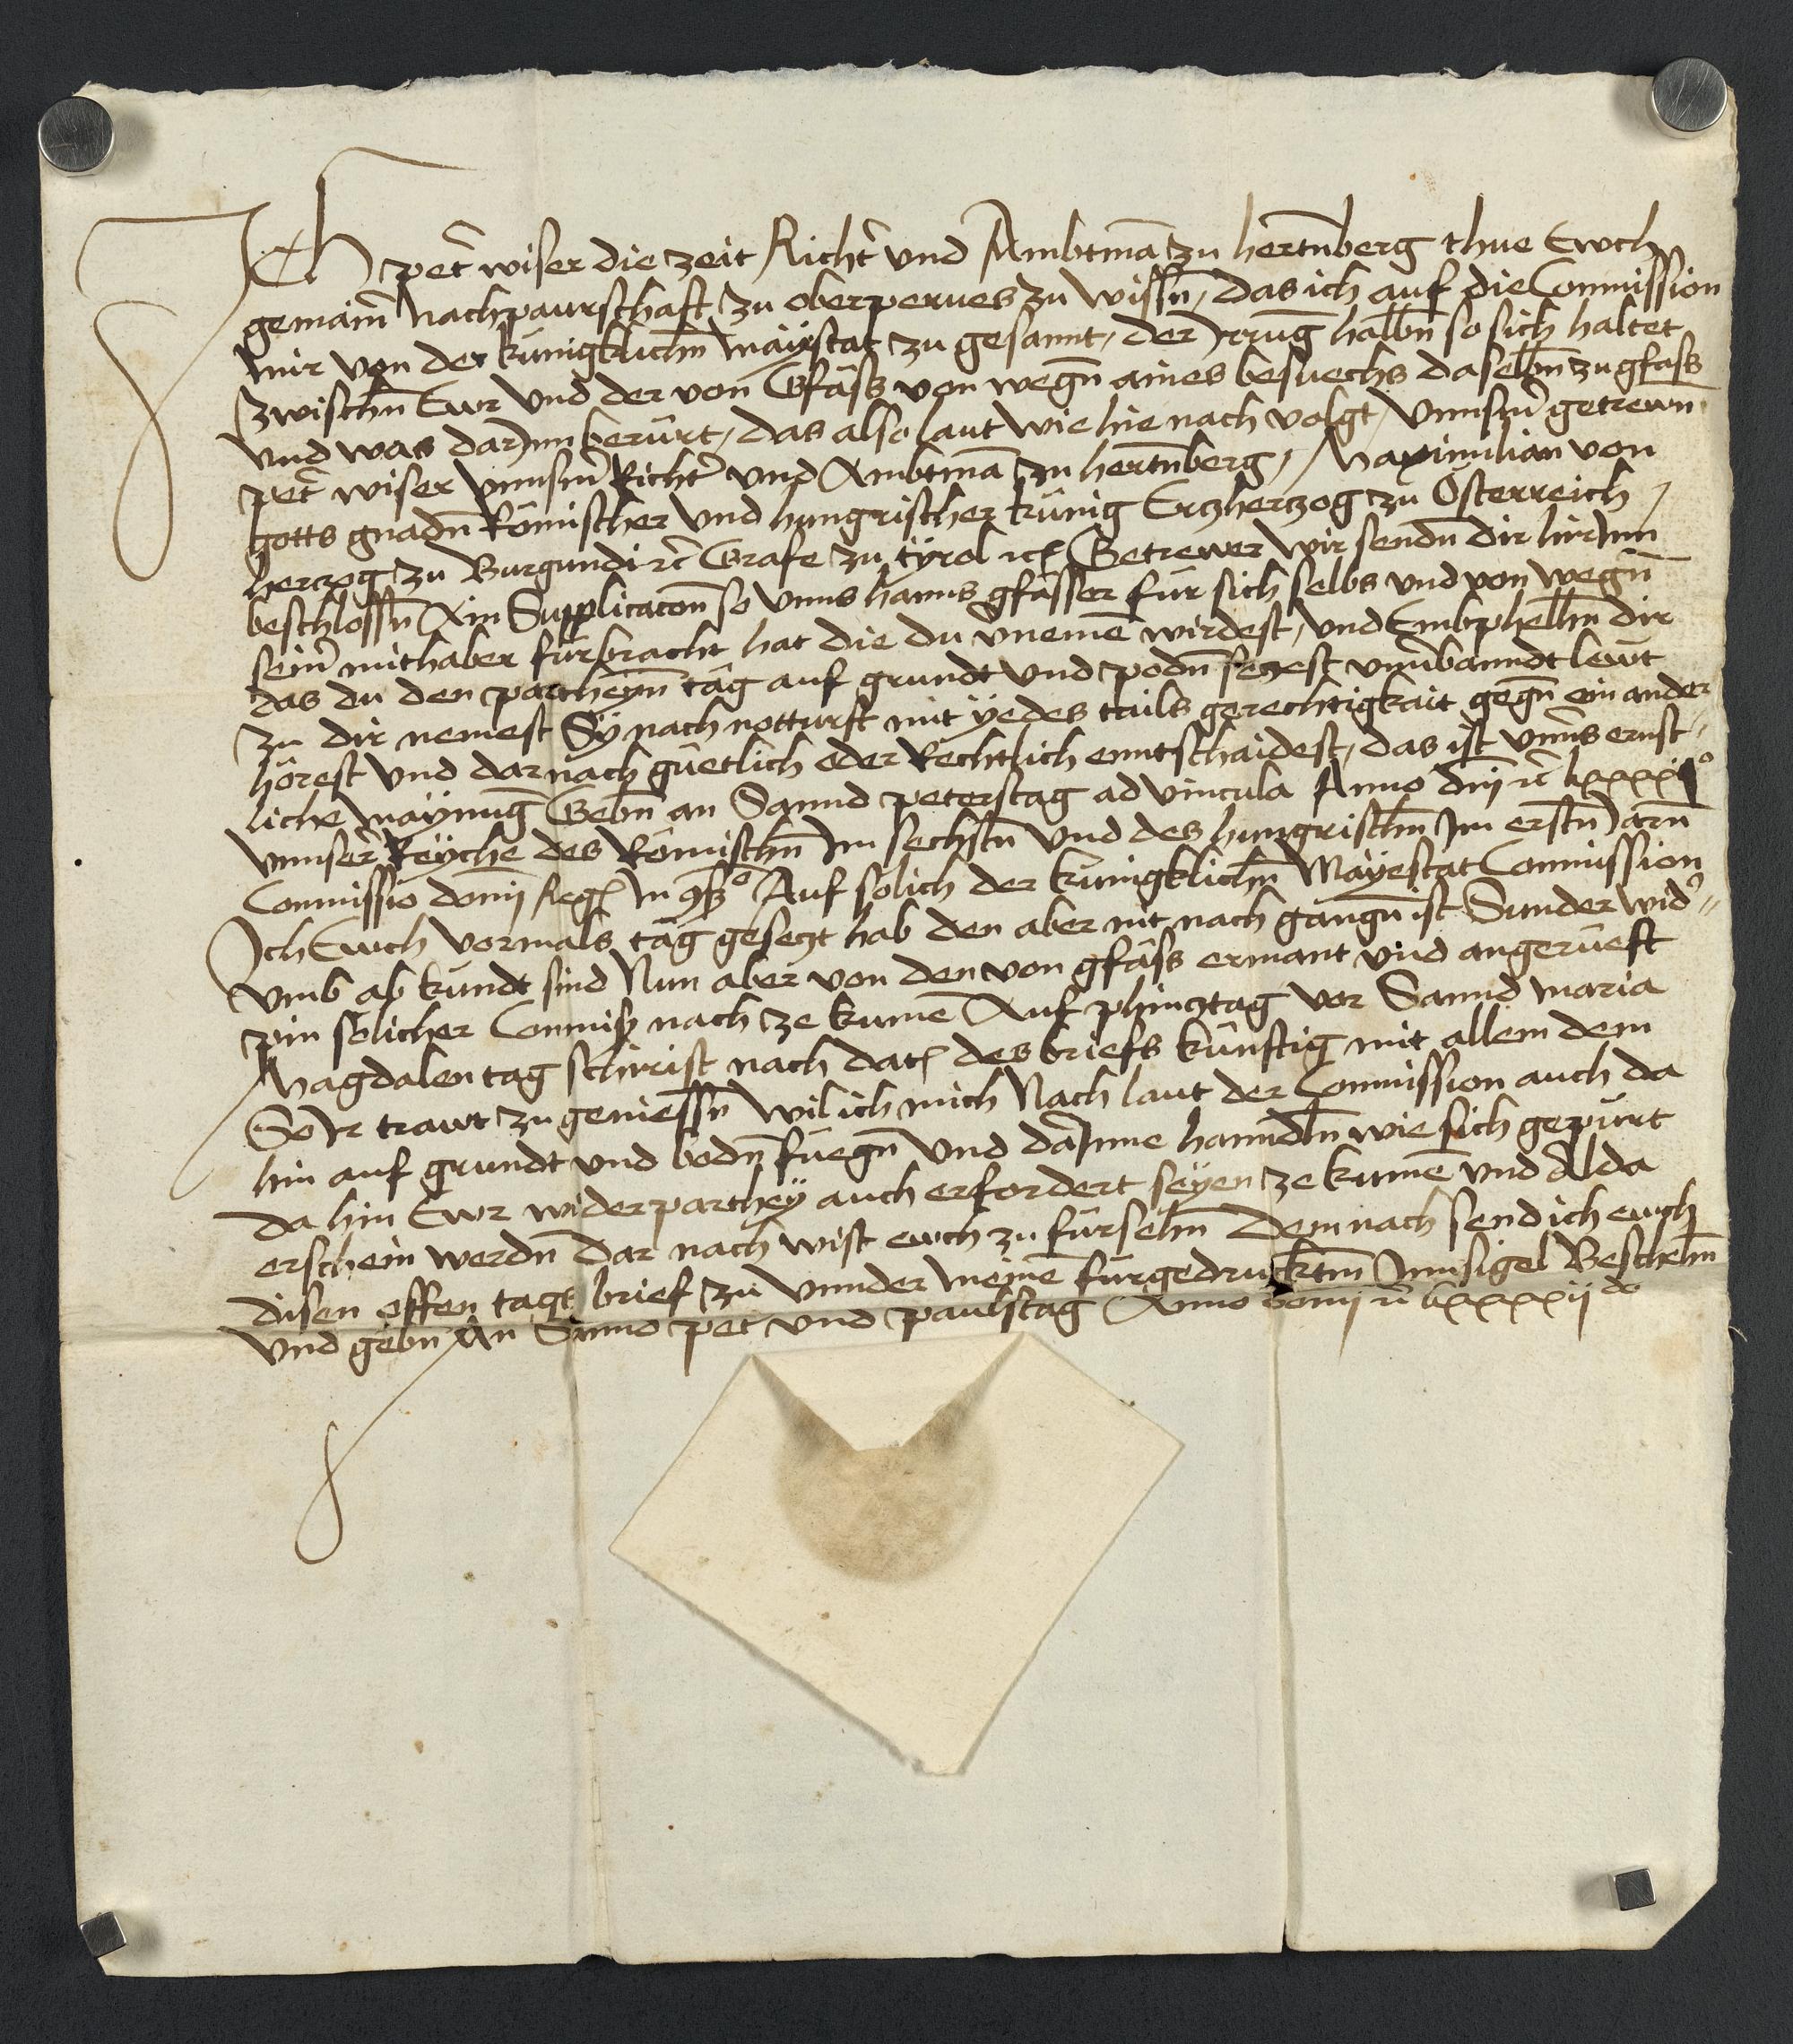 Ich pet̄ wiser die zeit Richt̄ vnd Ambtmā zu hertn̄berg thue Ewch
gemain̄ Nachpaurschaft zu oberperues zu wissn̄, das ich auf die Commission
mir von der kunigklichn̄ Mayestat zu gesannt, der Irrūg halbn̄ so sich haltet
zwischn̄ Ewr vnd der von Gfäss von wegn̄ aines besuechs daselbn̄ zu gfass
vnd was darInn berürt, das also laut wie hie nach volgt, Vnnsm̄ getrewn̄
pet̄ wiser vnnsm̄ Richt̄ vnd Ambtmā zu hertn̄berg, Maximilian von
gotts gnadn̄ Römischer vnd hungrischer künig Ertzhertzog zu Österreich
hertzog zu Burgundi rc̄ Grafe zu tyrol rc̄ Getrewer wir sendn̄ dir hirInn
beschlossn̄ Ain Supplicacon̄ so vnns hanns gfässer für sich selbs vnd von wegn̄
sein̄ mithaber fürbracht hat die du vnemē wirdest, vnd Embphelhn̄ dir
das du den partheyn̄ täg auf grundt vnd podn̄ setzest vnūbanndt lewt
zu dir nemest Sy nach notturft mit yedes tails gerechtigkait gegn̄ ein ander
hörest vnd darnach güetlich oder Rechtlich enntschaidest, das ist vnns̄ ernst-
liche Maynūg Gebn̄ an Sannd peterstag ad vincula Anno dn̄j rc̄ lxxxxjº
vnnser̄ Reyche des Römischn̄ Im sechstn̄ vnd des hungrischn̄ Im erstn̄ Jarn̄
Commissio domj Reg In Auf solich der kunigklichn̄ Mayestat Commission
Ich Ewch vormals täg gesetzt hab den aber nit nach gangn̄ ist Sunder wid̄-
vmb ab kundt sind Nun aber von den von gfäss ermant vnd angerüeft
pin solicher Commiss nach ze kumē Auf phintztag vor Sannd maria
Magdalentag schirist nach dat des briefs künftig mit allem dem
So Ir trawt zu geniessn̄ wil ich mich Nach laut der Commission auch da
hin auf grundt vnd bodn̄ füegn̄ vnd dāInne hanndln̄ wie sich gepürt
da hin Ewr widerparthey auch erfordert seyen ze kumē vnd Alda
erschein werdn̄ dar nach wist ewch zu fürsehn̄ demnach send ich ewch
disen offen tags brief zu vnnder meinē fürgedrucktm̄ Innsigel Beschehn̄
vnd gebn̄ An Sannd pet̄ vnd paulstag Anno domj rc̄ lxxxxij do